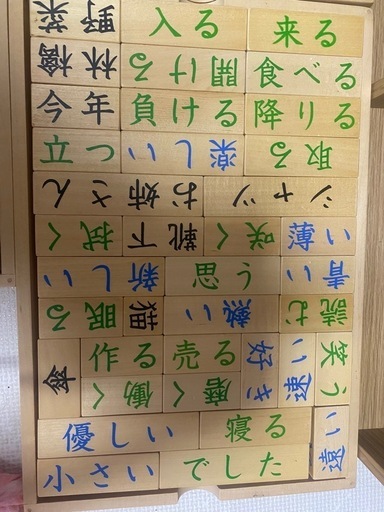 野菜 入る 来る
林檎 開ける 食べる
今年 負ける 降りる
立つ 楽しい 取る
お姉さん シャツ
拭く 靴下 咲く 薄い
新しい 思う 青い
眠る 猫 熱い 読む
傘 作る 売る 好き 速い 笑う
働く 磨く
優しい 寝る 遠い
小さい でした